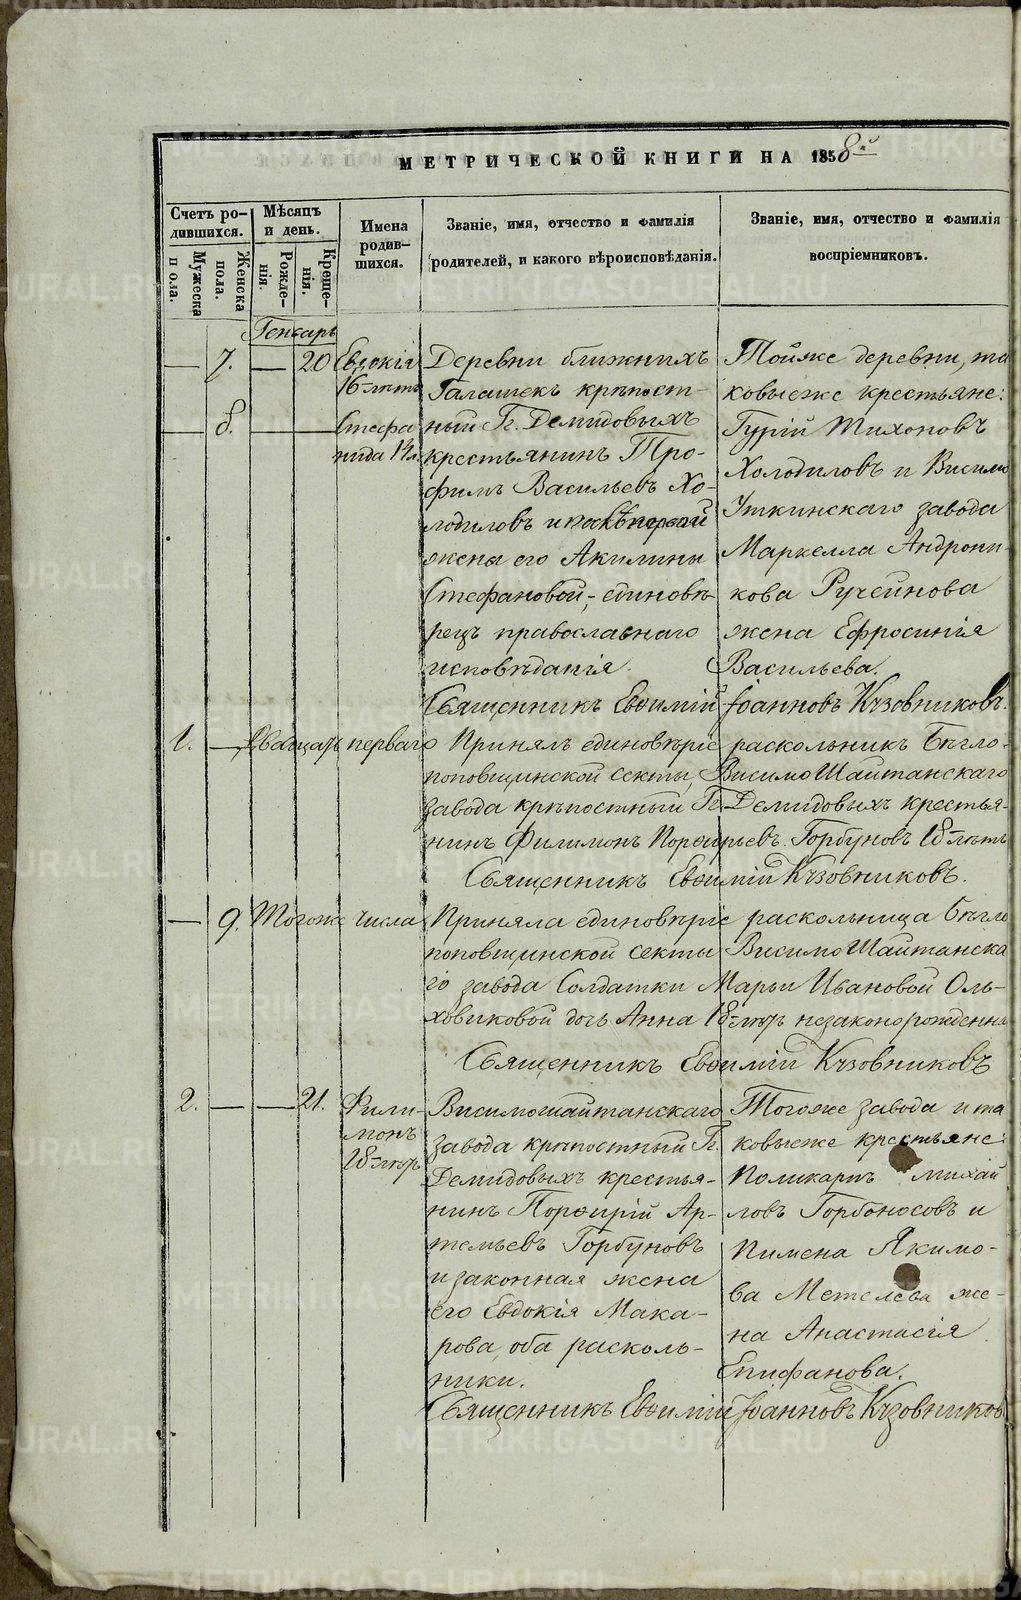 МЕТРИЧЕСКОЙ КНИГИ НА 1858й
Счетъ ро-
дившихся.
Мужеска
пола.
Женска
пола.
Мѣсяцъ
и день.
Рожде-
нія.
Креще-
нія.
Имена
родив-
шихся.
Званіе, имя, отчество и фамилія
родителей, и какого вѣроисповѣданія.
Званіе, имя, отчество и фамилія
воспріемниковъ.
Генварь
— 7. — 20
Евдокія
16 лѣтъ
— 8. — —
Стефа
нида 14 л.
Деревни ближнихъ
Галашекъ крѣпост-
ный Гг. Демидовыхъ
крестьянинъ Тро-
фимъ Васильевъ Хо-
лодиловъ и
жены его Акилины
Стефановой, единовѣ-
рецъ православнаго
исповѣданія.
Тойже деревни, та
ковыеже крестьяне:
Гурій Тихоновъ
Холодиловъ и Висимо
Уткинскаго завода
Маркелла Андрони-
кова Ручейнова
жена Ефросинія
Васильева.
Священникъ Евѳимій Іоанновъ Кузовниковъ.
1. — Двадцать перваго Принялъ единовѣріе раскольникъ Бѣгло-
поповщинской секты, ВисимоШайтанскаго
завода крѣпостный Гг. Демидовыхъ крестья-
нинъ Филимонъ Порфирьевъ Горбуновъ 18 лѣтъ
Священникъ Евѳимій Кузовниковъ.
— 9. Тогоже числа Приняла единовѣріе раскольница Бѣгло
поповщинской секты ВисимоШайтанска
го завода Солдатки Марьи Ивановой Оль-
ховиковой дочь Анна 18 лѣтъ незаконорожденна
Священникъ Евѳимій Кузовниковъ
2. — — 21.
Фили-
монъ
18 лѣтъ
Висимошайтанскаго
завода крѣпостный Гг.
Демидовыхъ крестья-
нинъ Порфирій Ар-
темьевъ Горбуновъ
и законная жена
его Евдокія Мака-
рова, оба расколь-
ники.
Тогоже завода и та
ковыеже крестьяне:
Поликарпъ Михай
ловъ Горбоносовъ и
Пимена Якимо-
ва Метелева же-
на Анастасія
Епифанова.
Священникъ Евѳимій Іоанновъ Кузовниковъ
METRIKI.GASO-URAL.RU